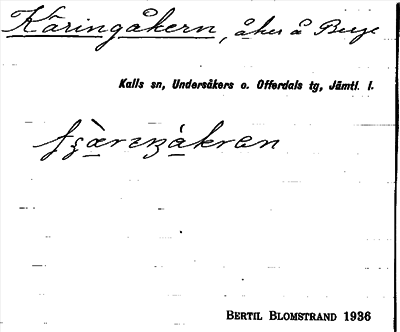 Käringåkern, åker å Berge
Kalls sn, Undersåkers o. Offerdals tg, Jämtl. l.
BERTIL BLOMSTRAND 1936